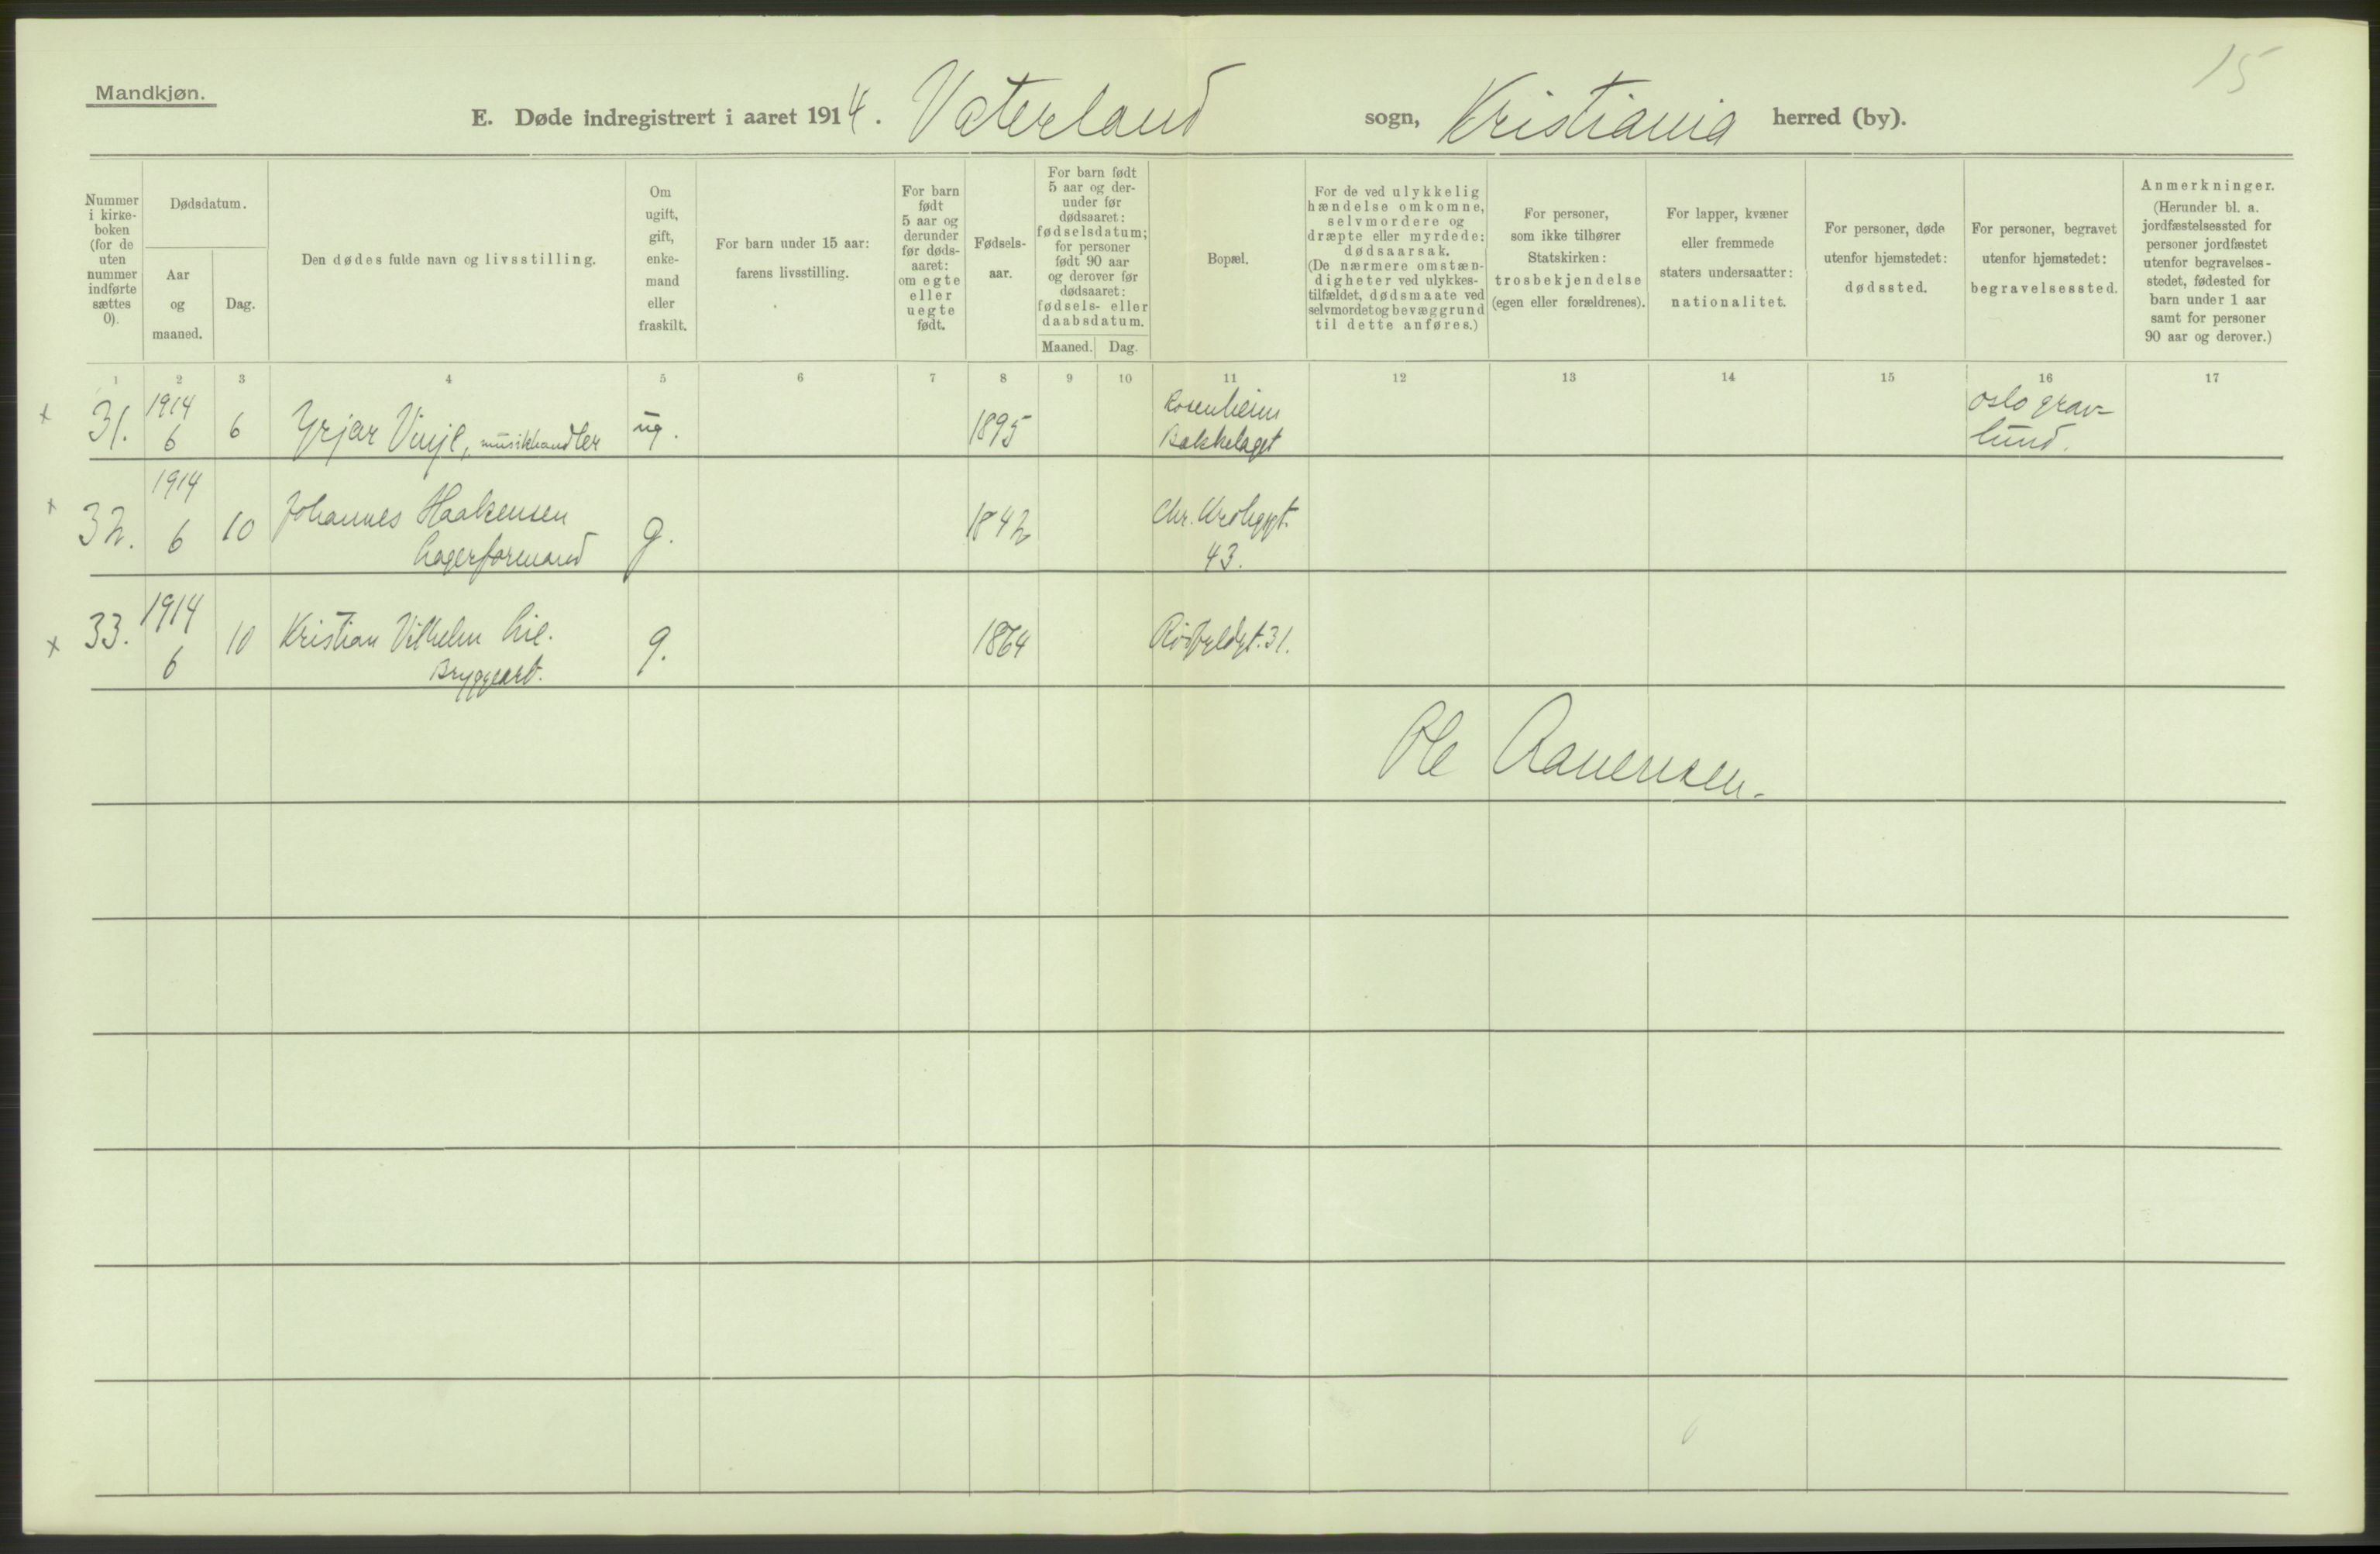 15
Mandkjøn.
E. Døde indregistrert i aaret 1914. Vaterland sogn, Kristiania herred (by).
Nummer
i kirke-
boken
(for de
uten
nummer
indførte
sættes
0).
Dødsdatum.
Aar
og
maaned.
Dag.
Den dødes fulde navn og livsstilling.
Om
ugift,
gift,
enke-
mand
eller
fraskilt.
For barn under 15 aar:
farens livsstilling.
For barn
født
5 aar og
derunder
før døds-
aaret:
om egte
eller
uegte
født.
Fødsels-
aar.
For barn født
5 aar og der-
under før
dødsaaret:
fødselsdatum;
for personer
født 90 aar
og derover før
dødsaaret:
fødsels- eller
daabsdatum.
Maaned. Dag.
Bopæl.
For de ved ulykkelig
hændelse omkomne,
selvmordere og
dræpte eller myrdede:
dødsaarsak.
(De nærmere omstæn-
digheter ved ulykkes-
tilfældet, dødsmaate ved
selvmordet og bevæggrund
til dette anføres.)
For personer,
som ikke tilhører
Statskirken:
trosbekjendelse
(egen eller forældrenes).
For lapper, kvæner
eller fremmede
staters undersaatter:
nationalitet.
For personer, døde
utenfor hjemstedet:
dødssted.
For personer, begravet
utenfor hjemstedet:
begravelsessted.
Anmerkninger.
(Herunder bl. a.
jordfæstelsessted for
personer jordfæstet
utenfor begravelses-
stedet, fødested for
barn under 1 aar
samt for personer
90 aar og derover.)
1 2 3 4 5 6 7 8 9 10 11 12 13 14 15 16 17
x 31. 1914
6 6 Yrjar Vinje, musikhandler ug. 1895 Rosenheim
Bækkelaget
Oslo grav=
lund.
x 32. 1914
6 10 Johannes Haakensen
Lagerformand g. 1842 Chr. Krohgsgt.
43.
x 33. 1914
6 10 Kristian Vilhelm Lie.
Bryggearb. g. 1864 31.
Ole Aanensen.